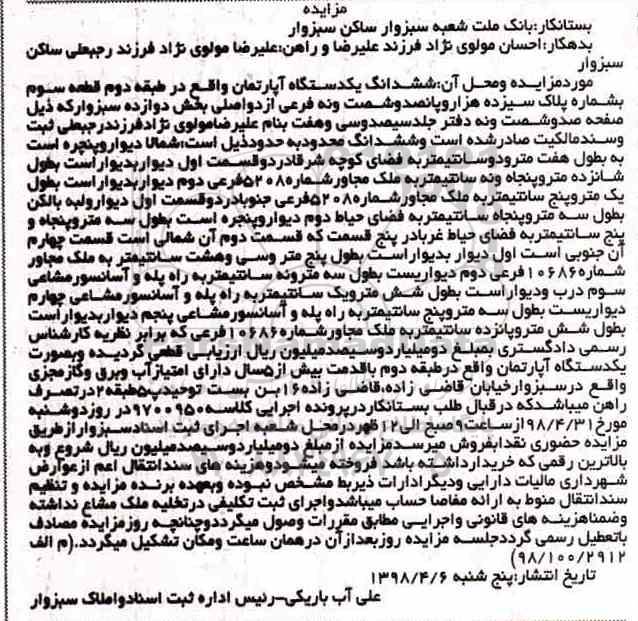 مزایده
بستانکار:بانک ملت شعبه سبزوار ساکن سبزوار
بدهکار:احسان مولوی نژاد فرزند علیرضا و راهن:علیرضا مولوی نژاد فرزند رجبعلی ساکن
سبزوار
موردمزایده ومحل آن:ششدانگ یکدستگاه آپارتمان واقع در طبقه دوم قطعه سوم
بشماره پلاک سیزده هزاروپانصدوشصت ونه فرعی ازدواصلی بخش دوازده سبزوارکه ذیل
صفحه صدوشصت ونه دفتر جلدسیصدوسی وهفت بنام علیرضامولوی نژادفرزندرجبعلی ثبت
وسندمالکیت صادرشده است وششدانگ محدودبه حدودذیل است:شمالا دیواروپنجره است
به بطول هفت مترودوسانتیمتربه فضای کوچه شرقادردوقسمت اول دیواربدیواراست بطول
شانزده متروپنجاه ونه سانتیمتربه ملک مجاورشماره۵۲۰۸فرعی دوم دیواربدیواراست بطول
یک متروپنج سانتیمتربه ملک مجاورشماره۵۲۰۸فرعی جنوبادردوقسمت اول دیوارولبه بالکن
بطول سه متروپنجاه سانتیمتربه فضای حیاط دوم دیواروپنجره است بطول سه متروپنجاه و
پنج سانتیمتربه فضای حیاط غربادر پنج قسمت که قسمت دوم آن شمالی است قسمت چهارم
آن جنوبی است اول دیوار بدیواراست بطول پنج متر وسی وهشت سانتیمتر به ملک مجاور
شماره۱۰۶۸۶فرعی دوم دیواریست بطول سه مترونه سانتیمتربه راه پله و آسانسورمشاعی
سوم درب ودیواراست بطول شش مترویک سانتیمتربه راه پله و آسانسورمشاعی چهارم
دیواریست بطول سه متروپنج سانتیمتربه راه پله و آسانسورمشاعی پنجم دیواربدیواراست
بطول شش متروپانزده سانتیمتربه ملک مجاورشماره۱۰۶۸۶فرعی که برابر نظریه کارشناس
رسمی دادگستری بمبلغ دومیلیاردوسیصدمیلیون ریال ارزیابی قطعی گردیده وبصورت
یکدستگاه آپارتمان واقع درطبقه دوم باقدمت بیش از۵سال دارای امتیازآب وبرق وگازمجزی
واقع درسبزوارخیابان قاضی زاده،قاضی زاده۱۶بن بست توحیدب۵طبقه۲درتصرف
راهن میباشدکه درقبال طلب بستانکاردرپرونده اجرایی کلاسه۹۷۰۰۹۵۰در روزدوشنبه
مورخ۹۸/۴/۳۱ازساعت۹صبح الی۱۲ظهردرمحل شعبه اجرای ثبت اسنادسبزوارازطریق
مزایده حضوری نقدابفروش میرسدمزایده ازمبلغ دومیلیاردوسیصدمیلیون ریال شروع وبه
بالاترین رقمی که خریدارداشته باشد فروخته میشودوهزینه های سندانتقال اعم ازعوارض
شهرداری مالیات دارایی ودیگرادارات ذیربط مشخص نبوده وبعهده برنده مزایده و تنظیم
سندانتقال منوط به ارائه مفاصا حساب میباشدواجرای ثبت تکلیفی درتخلیه ملک مشاع نداشته
وضمناهزینه های قانونی واجرایی مطابق مقررات وصول میگرددوچنانچه روزمزایده مصادف
باتعطیل رسمی گرددجلسه مزایده روزبعدازآن درهمان ساعت ومکان تشکیل میگردد.(م الف
۹۸/۱۰۰/۲۹۱۲)
تاریخ انتشار:پنج شنبه ۱۳۹۸/۴/۶
علی آب باریکی-رئیس اداره ثبت اسنادواملاک سبزوار